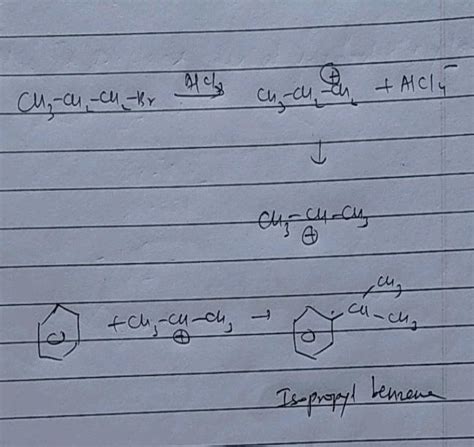 CH3-CH2-CH2-Br AlCl3 → CH3-CH2-CH2 ⊕ + AlCl4-
↓
CH3-CH-CH3
⊕
+ CH3-CH-CH3 → CH-CH3
⊕ CH3
Isopropyl benzene